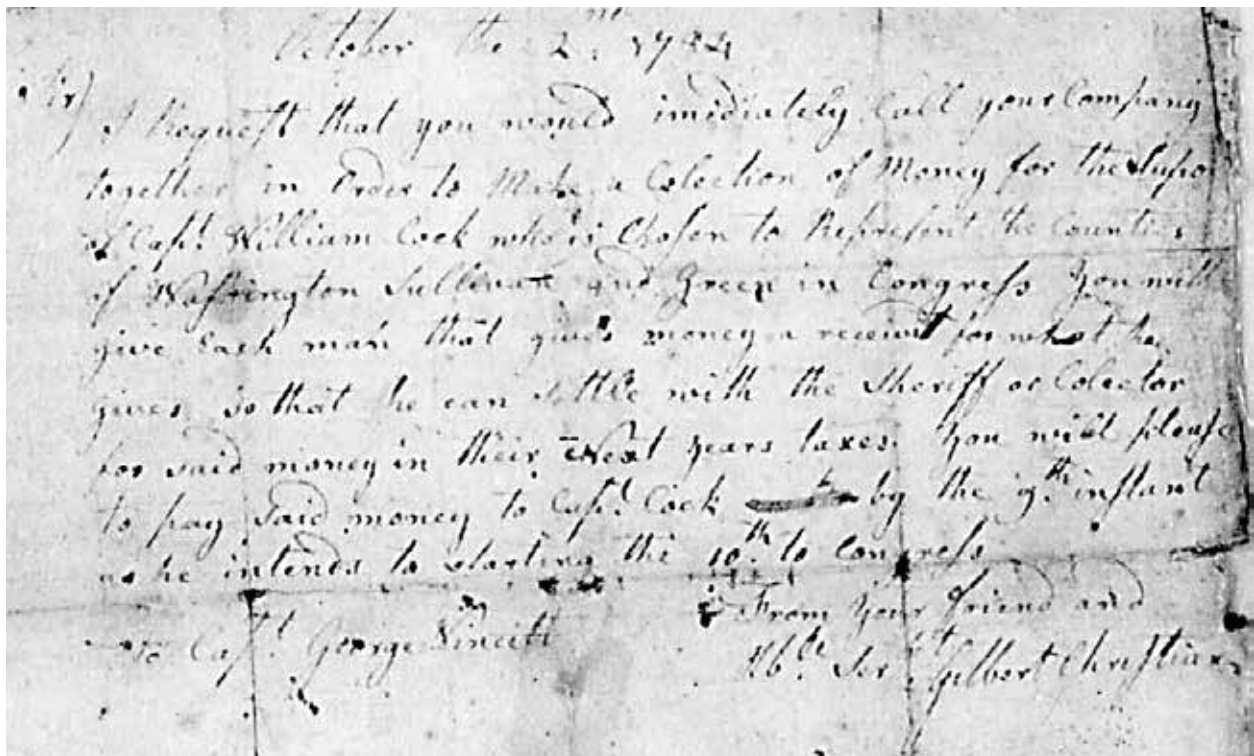 October the 2nd. 1784
Sir)
I Request that you would imediately Call your Company
together in Order to Make a Colection of Money for the Supo
of Capt. William Cock who is Chosen to Represent the Counties
of Washington Sullivan and Green in Congress You will
give Each man that gives money a receiut for what he
gives so that he can settle with the Sheriff or Colector
for said money in their Next years taxes. You will please
to pay said money to Capt. Cock by the 9th. instant
as he intends to starting the 10th. to Congress
From Your friend and
Hble Sert. Gilbert Christian
To Capt. George Vincent